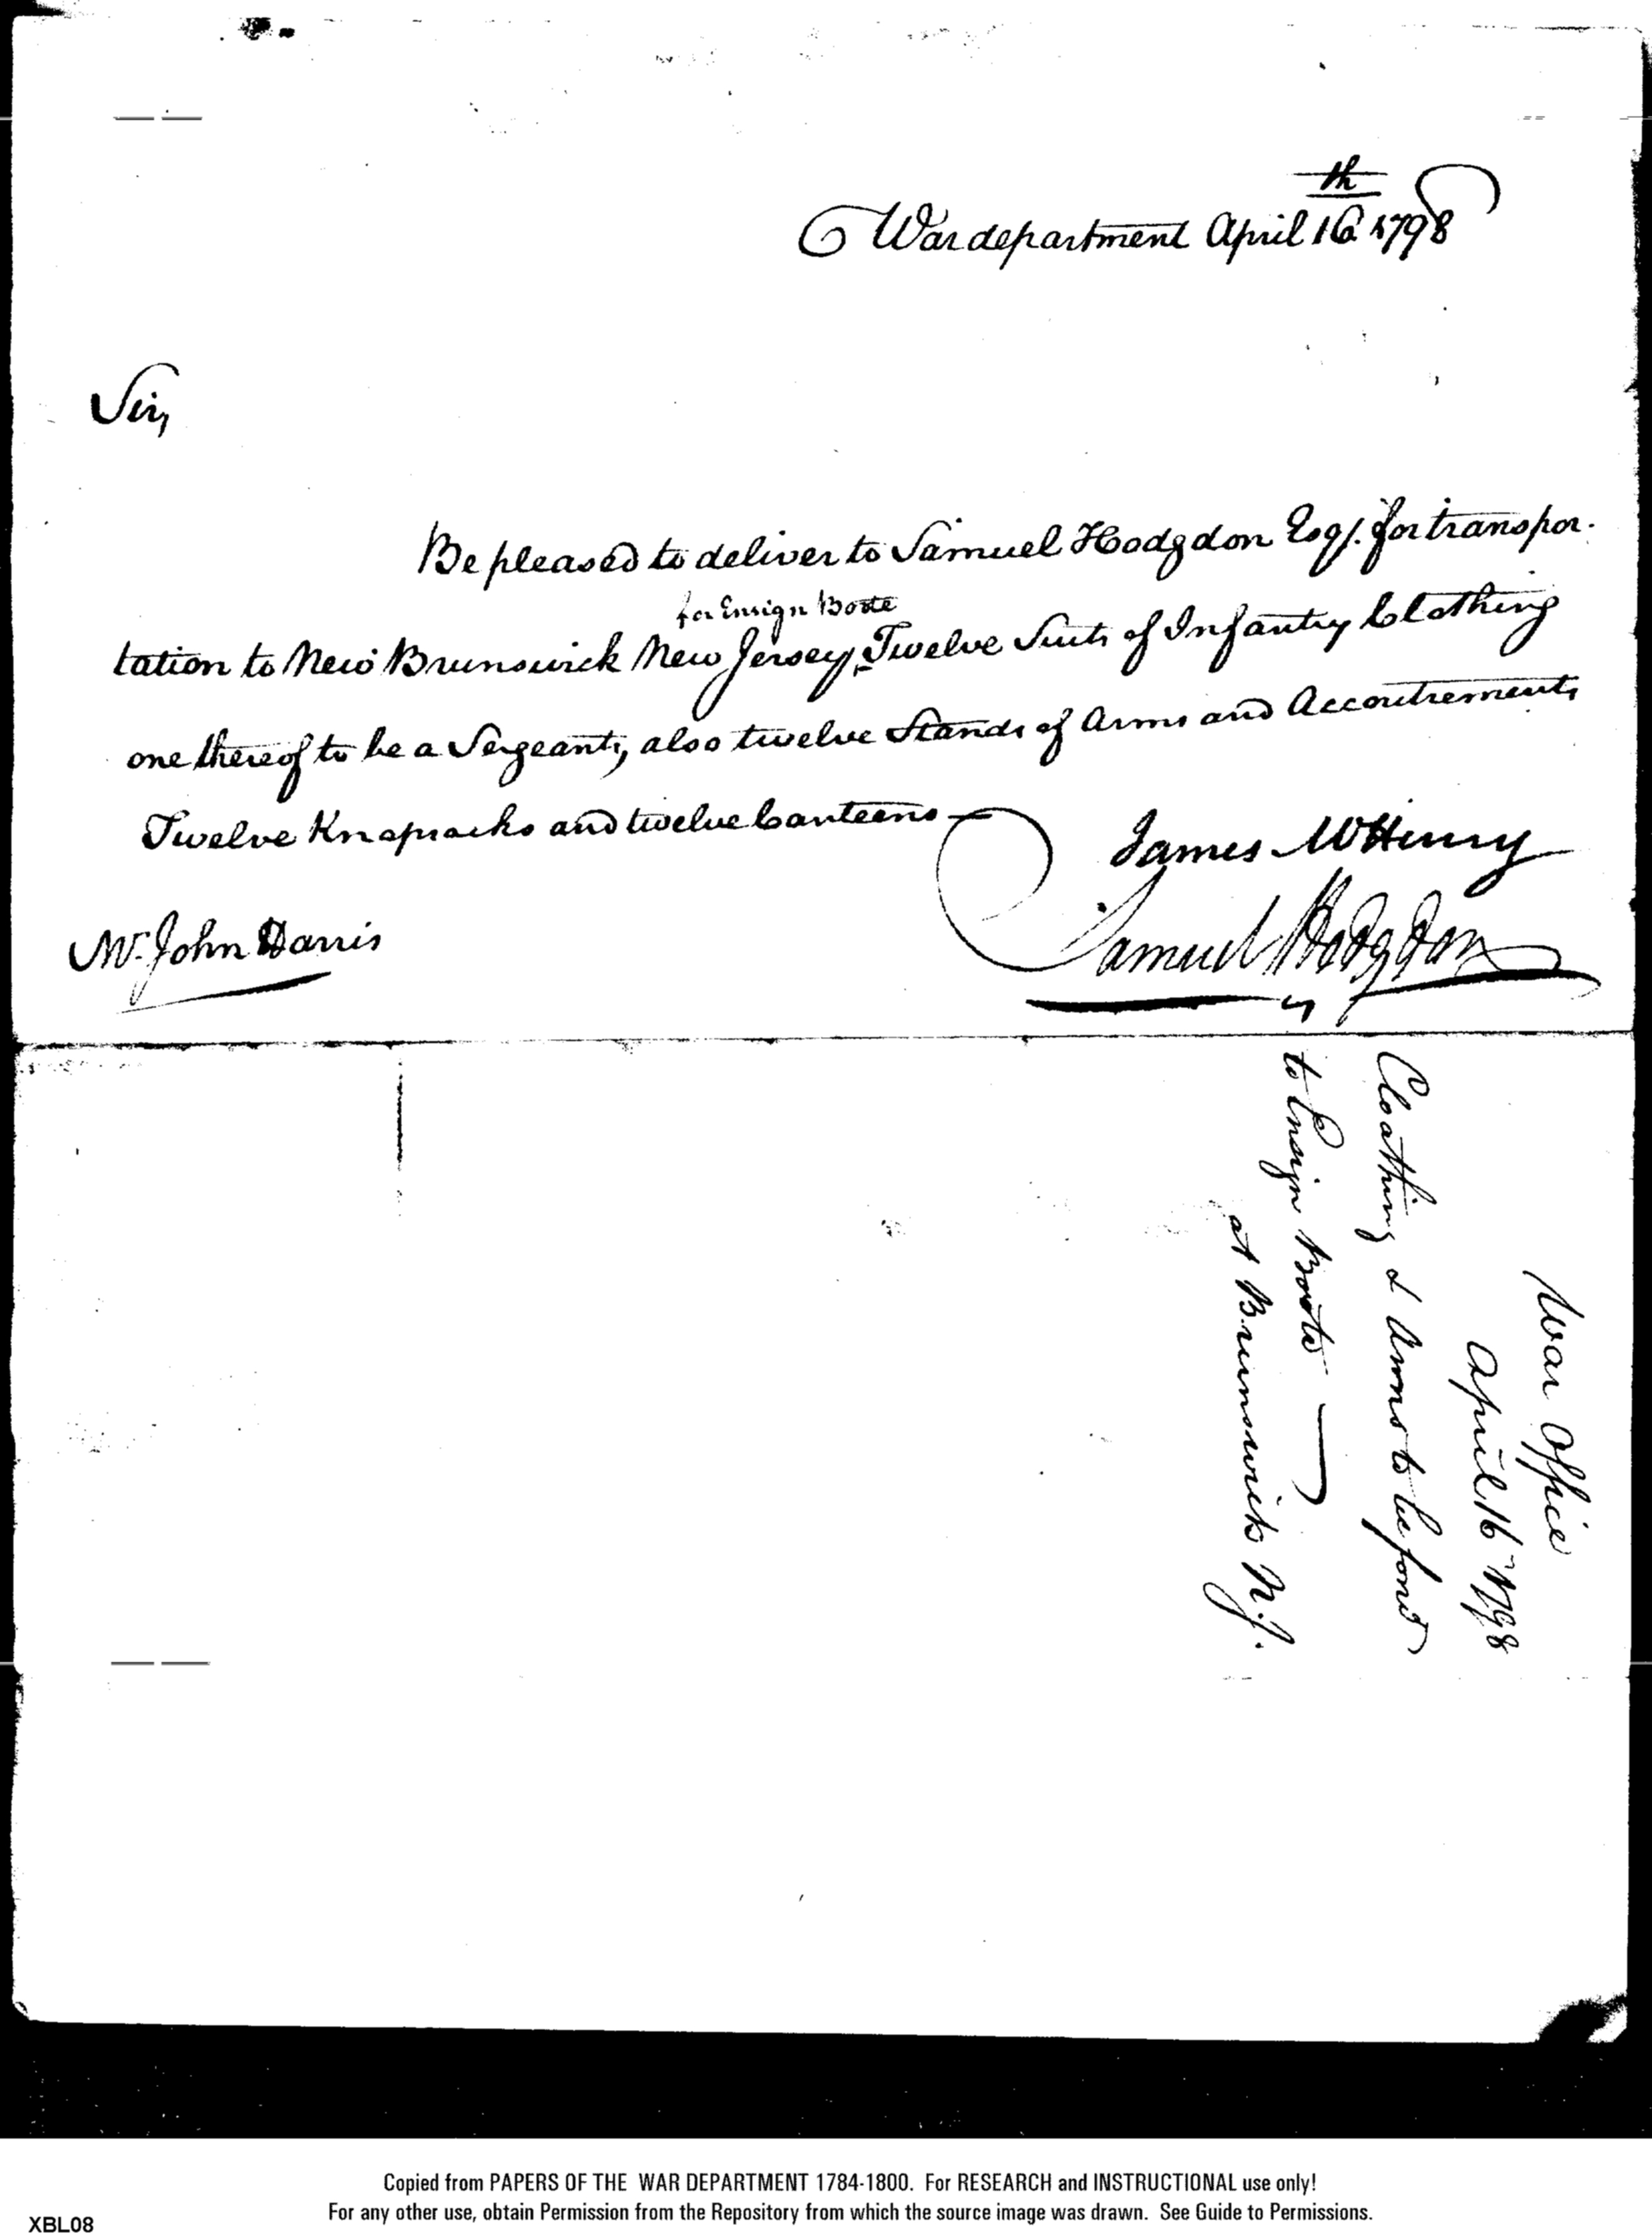 War department April 16th 1798
Sir,
Be pleased to deliver to Samuel Hodgdon Esqr. for transpor-
for Ensign Boote
tation to New Brunswick New Jersey, Twelve Suits of Infantry Clothing
one thereof to be a Sergeants, also twelve Stands of Arms and Accoutrements
Twelve Knapsacks and twelve Canteens
James McHenry
Mr. John Harris
Samuel Hodgdon
War Office
April 16 1798
Cloathing & Arms to be ford
to Ensign Boote
at Brunswick N.J.
Copied from PAPERS OF THE WAR DEPARTMENT 1784-1800. For RESEARCH and INSTRUCTIONAL use only!
For any other use, obtain Permission from the Repository from which the source image was drawn. See Guide to Permissions.
XBL08